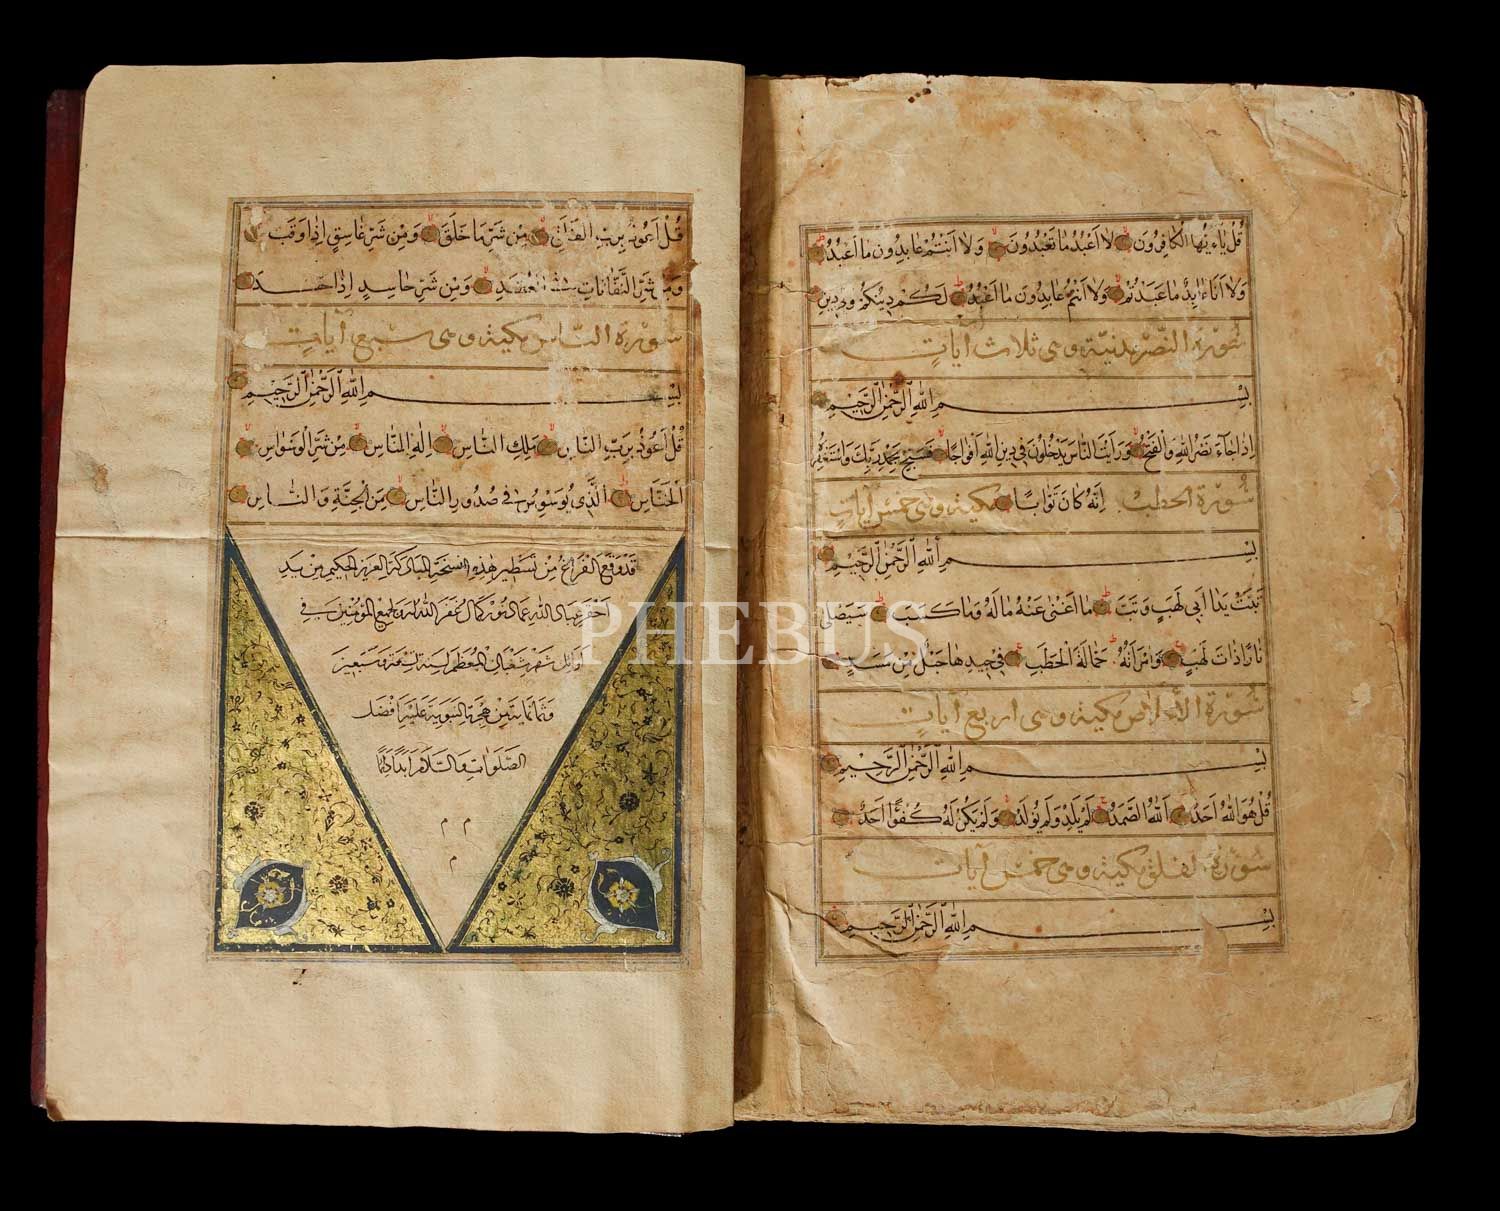 قُلْ يَا ءَيُّهَا الْكَافِرُونَ لَا أَعْبُدُ مَا تَعْبُدُونَ وَلَا أَنْتُمْ عَابِدُونَ مَا أَعْبُدُ
وَلَا أَنَا عَابِدٌ مَا عَبَدْتُمْ وَلَا أَنْتُمْ عَابِدُونَ مَا أَعْبُدُ لَكُمْ دِينُكُمْ وَلِيَ دِينِ
سُورَةُ النَّصْرِ مدنيّة وهي ثلاث آيات
بِسْمِ اللهِ الرَّحْمٰنِ الرَّحِيمِ
إِذَا جَاءَ نَصْرُ اللهِ وَالْفَتْحُ وَرَأَيْتَ النَّاسَ يَدْخُلُونَ فِي دِينِ اللهِ أَفْوَاجًا فَسَبِّحْ بِحَمْدِ رَبِّكَ وَاسْتَغْفِرْهُ
إِنَّهُ كَانَ تَوَّابًا سُورَةُ الحطب مكية وهي خمس آيات
بِسْمِ اللهِ الرَّحْمٰنِ الرَّحِيمِ
تَبَّتْ يَدَا أَبِي لَهَبٍ وَتَبَّ مَا أَغْنَى عَنْهُ مَالُهُ وَمَا كَسَبَ سَيَصْلَى
نَارًا ذَاتَ لَهَبٍ وَامْرَأَتُهُ حَمَّالَةَ الْحَطَبِ فِي جِيدِهَا حَبْلٌ مِنْ مَسَدٍ
سُورَةُ الإخلاص مكية وهي اربع آيات
بِسْمِ اللهِ الرَّحْمٰنِ الرَّحِيمِ
قُلْ هُوَ اللهُ أَحَدٌ اللهُ الصَّمَدُ لَمْ يَلِدْ وَلَمْ يُولَدْ وَلَمْ يَكُنْ لَهُ كُفُوًا أَحَدٌ
سُورَةُ الفلق مكية وهي خمس آيات
بِسْمِ اللهِ الرَّحْمٰنِ الرَّحِيمِ
قُلْ أَعُوذُ بِرَبِّ الْفَلَقِ مِنْ شَرِّ مَا خَلَقَ وَمِنْ شَرِّ غَاسِقٍ إِذَا وَقَبَ
وَمِنْ شَرِّ النَّفَّاثَاتِ فِي الْعُقَدِ وَمِنْ شَرِّ حَاسِدٍ إِذَا حَسَدَ
سُورَةُ الناس مكية وهي سبع آيات
بِسْمِ اللهِ الرَّحْمٰنِ الرَّحِيمِ
قُلْ أَعُوذُ بِرَبِّ النَّاسِ مَلِكِ النَّاسِ إِلٰهِ النَّاسِ مِنْ شَرِّ الْوَسْوَاسِ
الْخَنَّاسِ الَّذِي يُوَسْوِسُ فِي صُدُورِ النَّاسِ مِنَ الْجِنَّةِ وَالنَّاسِ
قد وقع الفراغ من تسطير هذه النسخة المباركة العزيز الحكيم من يد
احقر عباد الله عماد كمال غفر الله له ولجميع المؤمنين في
اوائل شهر شعبان المعظم لسنة
وثمانمايه من هجرة النبوية عليه افضل
الصلوات والسلام ابدا دائما
PHEBUS